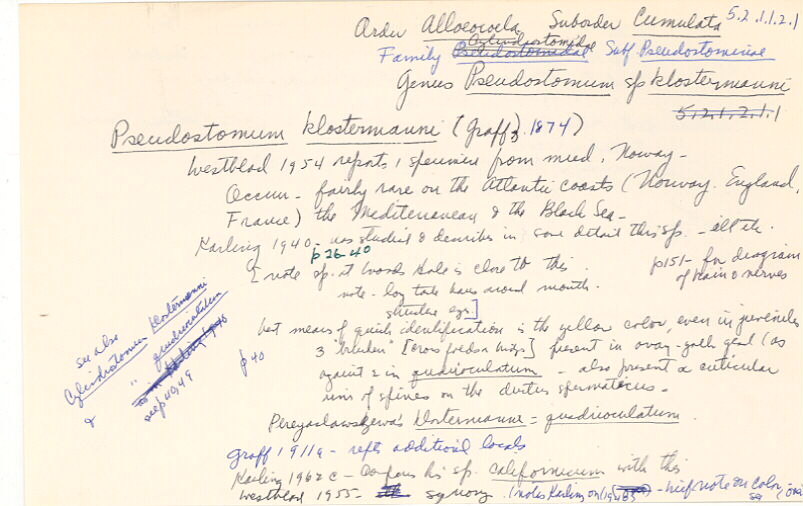 Order Alloeocoela Suborder Cumulata 5.2.1.1.2.1
Cylindrostomidae
Family Pseudostomidae Subf Pseudostominae
Genus Pseudostomum sp klostermanni
5.2.1.2.1.1
Pseudostomum klostermanni (Graff, 1874)
Westblad 1954 reports 1 specimen from mud, Norway -
Occurs - fairly rare on the Atlantic coasts (Norway. England,
France) the Mediteranean & the Black Sea -
Karling 1940 - has studied & describes in some detail this sp. - ill etc.
p 26-40
[note sp. at Woods Hole is close to this
p151- for diagram
of brain & nerves
note - long tube around mouth.
structure eyes]
best means of quick identification is the yellow color, even in juveniles
p 40
3 [cross bridges] present in ovary-yolk gland (as
against 2 in quadrioculatum - also present a cuticular
ring of spines on the ductus spermaticus -
Pereyaslawzewa's klostermanni = quadrioculatum.
see also
Cylindrostomum klostermanni
& " quadrioculatum
see p 40, 49
Graff 1911a - refs additional locals
Karling 1962c - Compares his sp. californicum with this
Westblad 1955 - synony. (notes Karling on - brief note on color